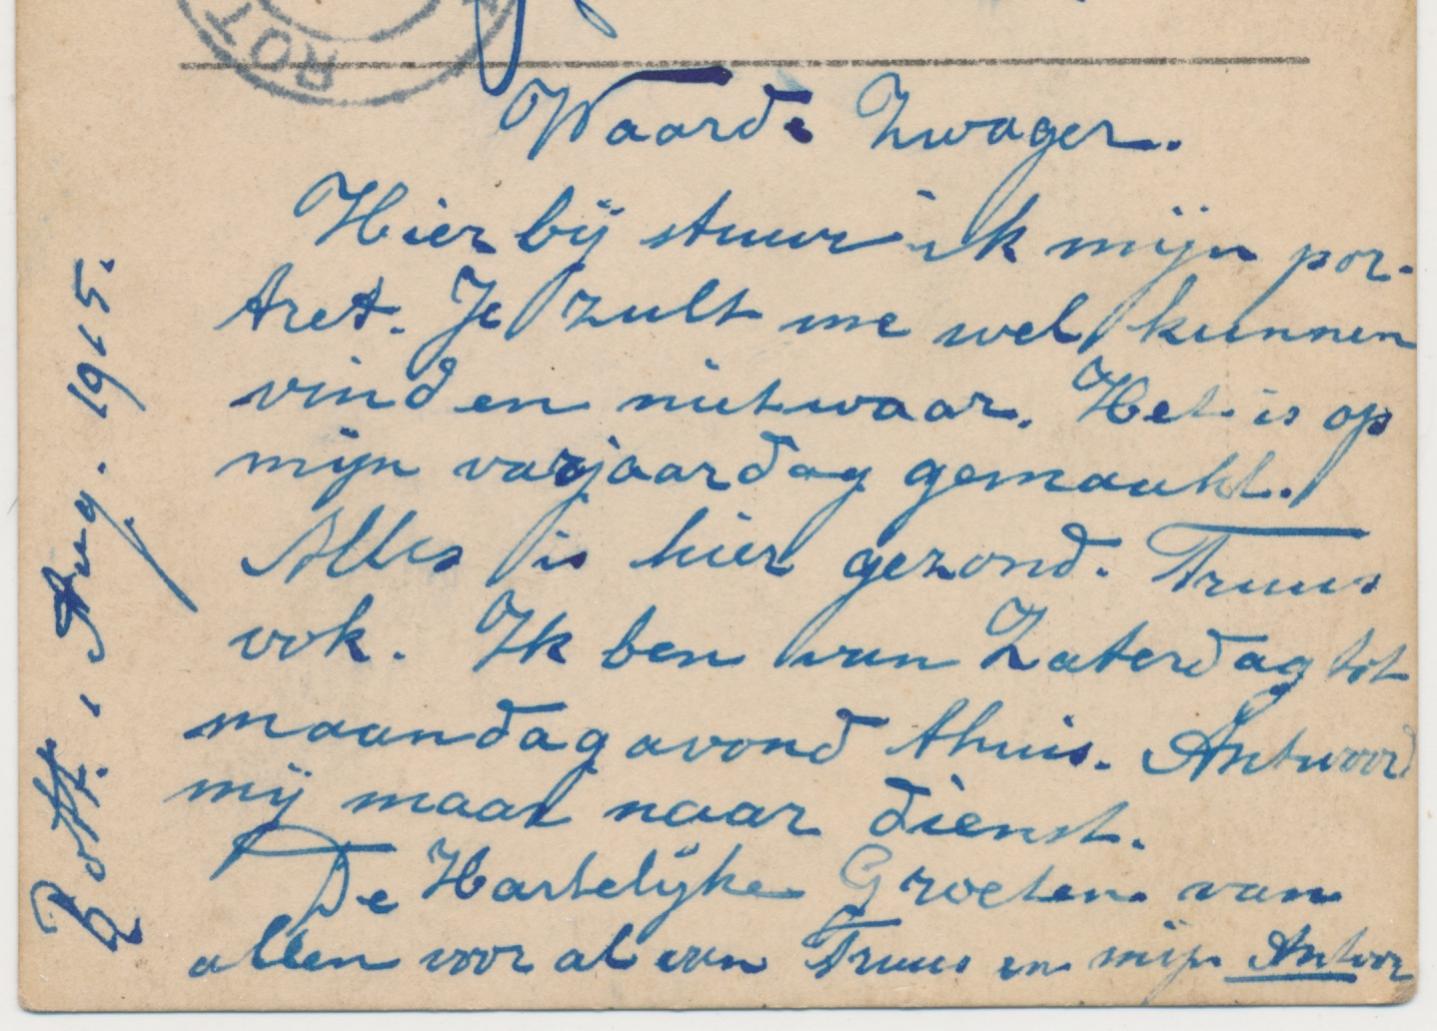 ROT
Waarde Zwager.
Hier bij stuur ik mijn por-
tret. Je zult me wel kunnen
vinden nietwaar. Het is op
mijn varjaardag gemaakt.
Alles is hier gezond. Truus
ook. Ik ben van Zaterdag tot
maandagavond thuis. Antwoord
mij maar naar dienst.
De Hartelijke Groeten van
allen voor al van Truus en mijn Antoon
Rott. 1 Aug. 1915.